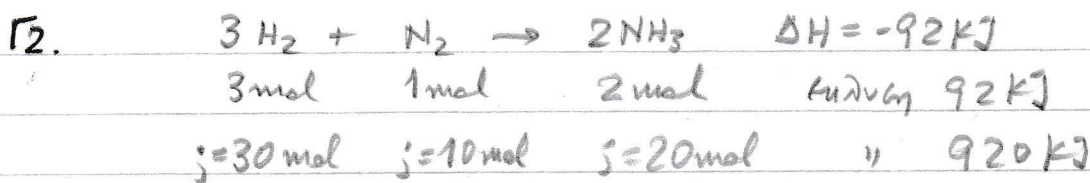 Γ2. 3 H₂ + N₂ → 2NH₃ ΔH = -92 KJ
3mol 1mol 2mol έκλυση 92 KJ
;=30mol ;=10mol ;=20mol " 920 KJ